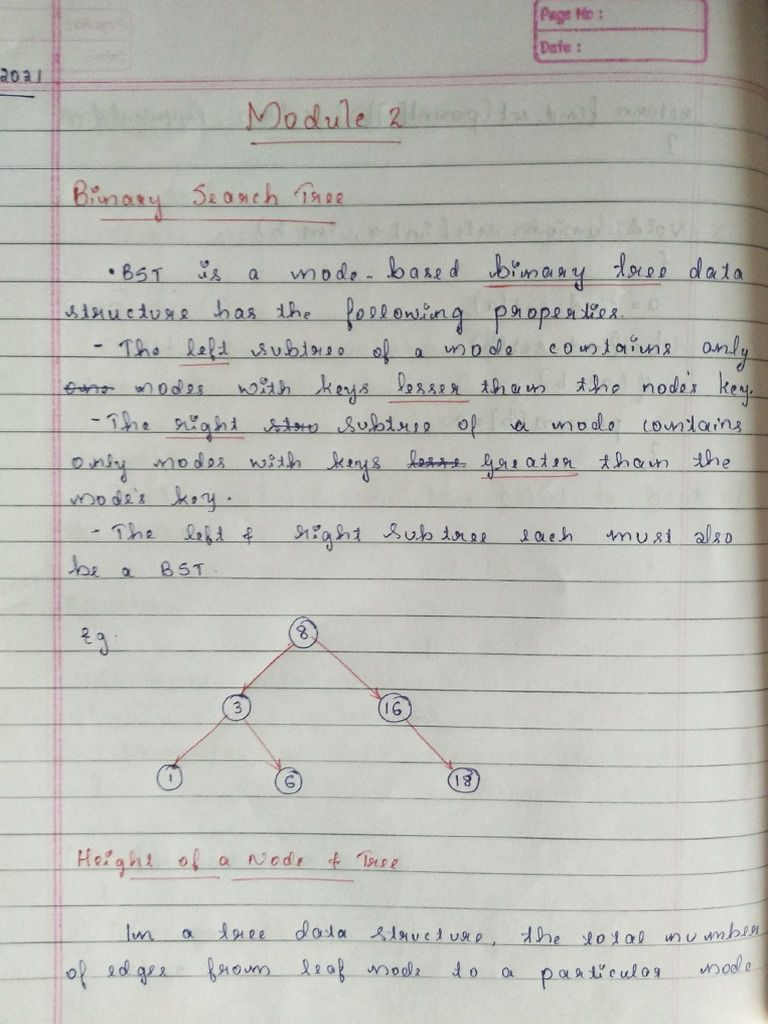 Page No :
Date :
2021
Module 2
Binary Search Tree
• BST is a node-based binary tree data
structure has the following properties.
- The left subtree of a node contains only
nodes with keys lesser than the node's key.
- The right subtree of a node contains
only nodes with keys greater than the
node's key.
- The left & right subtree each must also
be a BST.
Eg.
8
3 16
1 6 18
Height of a Node & Tree
In a tree data structure, the total number
of edges from leaf node to a particular node